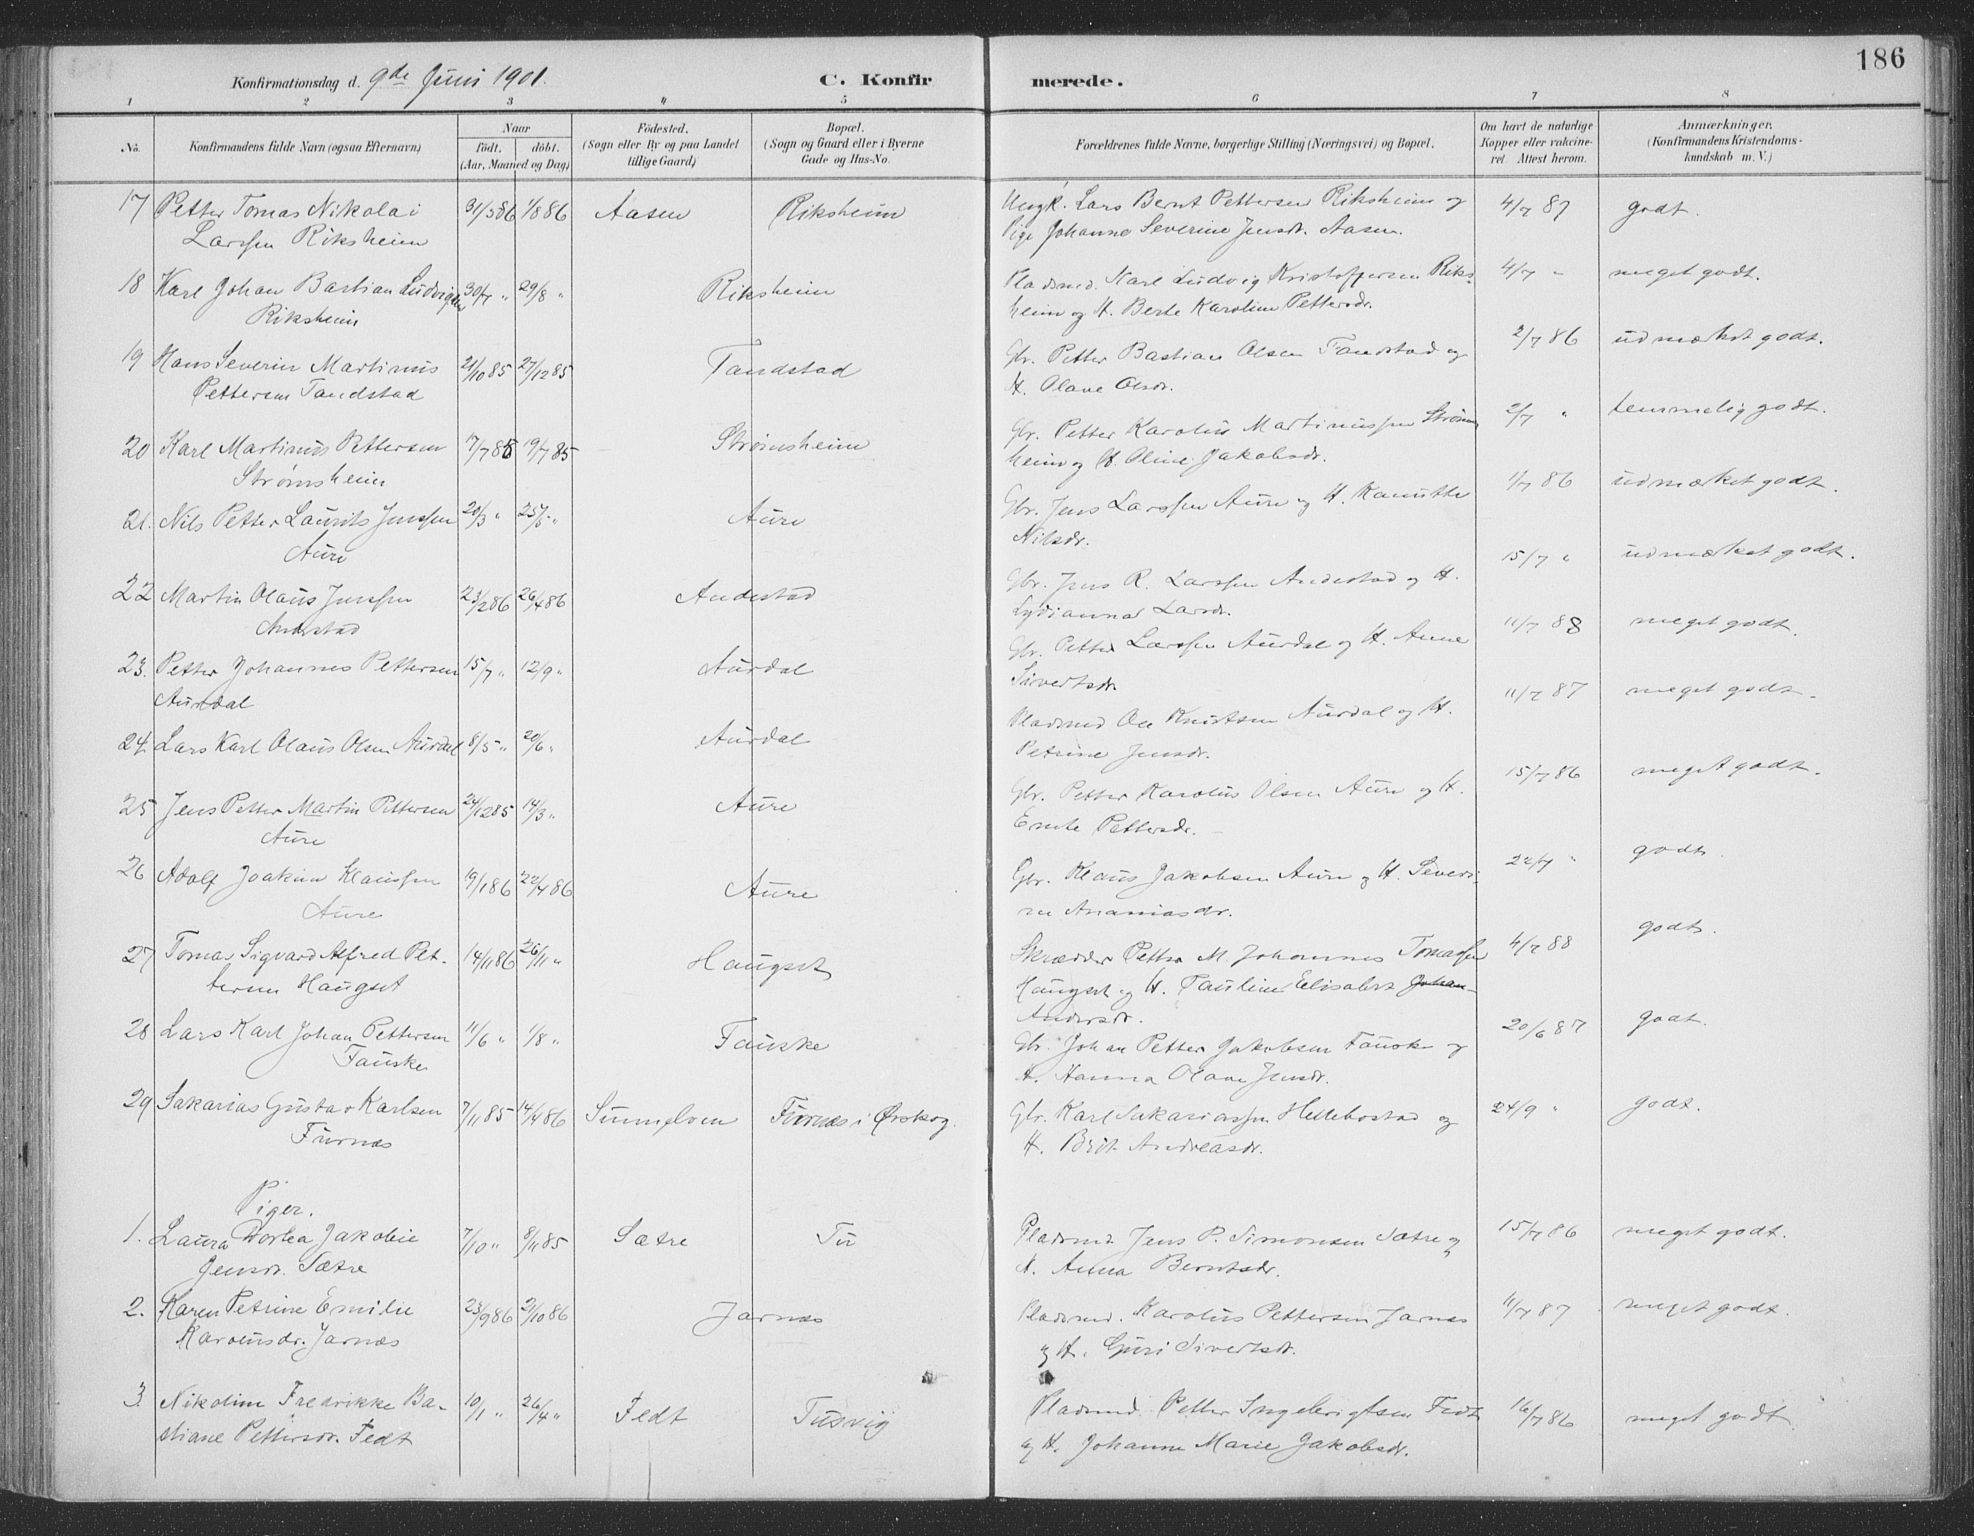 186
Konfirmationsdag d. 9de Juni 1901.
C. Konfirmerede.
1 2 3 4 5 6 7 8
No.
Konfirmandens fulde Navn (ogsaa Efternavn)
Naar
födt. döbt.
(Aar, Maaned og Dag)
Födested.
(Sogn eller By og paa Landet
tillige Gaard)
Bopæl.
(Sogn og Gaard eller i Byerne
Gade og Hus-No.
Forældrenes fulde Navne, borgerlige Stilling (Næringsvei) og Bopæl.
Om havt de naturlige
Kopper eller vakcine-
ret. Attest herom.
Anmærkninger.
(Konfirmandens Kristendoms-
kundskab m. V.)
17 Petter Tomas Nikolai 31/5 86 1/8 86 Aasen Riksheim Ungk. Lars Bernt Pettersen Riksheim og 4/7 87 godt.
Larssen Riksheim Pige Johanne Severine Jensdr. Aasen.
18 Karl Johan Bastian Ludvigsen 30/7 " 29/8 " Riksheim Pladsmd. Karl Ludvig Kristoffersen Riks- 4/7 " meget godt.
Riksheim heim og H. Berte Karoline Pettersdr.
19 Hans Severin Martinus 21/10 85 27/12 85 Tandstad Gbr. Petter Bastian Olsen Tandstad og 2/7 86 udmærket godt.
Pettersen Tandstad H. Olave Olsdr.
20 Karl Martinus Pettersen 17/7 85 19/7 85 Strømsheim Gbr. Petter Karolus Martinussen Strøms- 2/7 " temmelig godt.
Strømsheim heim og H. Oline Jakobsdr.
21. Nils Petter Laurits Jenssen 20/3 " 25/5 " Aure Gbr. Jens Larssen Aure og H. Kanutte 1/7 86 udmærket godt.
Aure Nilsdr.
22 Martin Olaus Jenssen 23/2 86 26/4 86 Andestad Gbr. Jens R. Larssen Andestad og H. 15/7 " udmærket godt.
Andestad Lydianna Larsdr.
23. Petter Johannes Pettersen 15/7 " 12/9 " Aurdal Gbr. Petter Larssen Aurdal og H. Anne 11/7 88 meget godt.
Aurdal Sivertsdr
24. Lars Karl Olaus Olsen Aurdal 8/5 " 20/6 " Aurdal Pladsmd Ole Knutsen Aurdal og H. 11/7 87 meget godt.
Petrine Jensdr.
25 Jens Petter Martin Pettersen 24/12 85 14/3 " Aure Gbr. Petter Karolus Olsen Aure og H. 15/7 86 meget godt.
Aure Pettersdr.
26 Adolf Joakim Klaussen 19/1 86 22/4 86 Aure Gbr. Klaus Jakobsen Aure og H. Severi- 22/7 " godt.
Aure ne Ananiasdr.
27 Tomas Sigvard Alfred Pet- 14/11 86 26/11 " Haugset Skrædder Petter M Johannes Tomassen 4/7 88 godt.
tersen Haugset Haugset og H. Pauline Elisabet Johan-
Andersdr.
28 Lars Karl Johan Pettersen 11/6 " 1/8 " Fauske Gbr. Johan Petter Jakobsen Fauske og 20/6 87 godt.
Fauske H. Hanna Olave Jensdr.
29 Sakarias Gustav Karlsen 7/11 85 14/4 86 Sunnelven Furnæs i Ørskog. Gbr. Karl Sakariassen Hellebostad og 24/9 " godt.
Furnæs H. Brit Andreasdr.
Piger.
1. Laura Dortea Jakobie 7/10 " 8/11 85 Sætre Tu Pladsmd. Jens P. Simonsen Sætre og 15/7 86 meget godt.
Jensdr. Sætre H. Anna Berntsdr.
2. Karen Petrine Emilie 23/9 86 2/10 86 Jarnæs Pladsmd. Karolus Pettersen Jarnæs 11/7 87 meget godt.
Karolusdr. Jarnæs og H. Guri Sivertsdr.
3. Nikoline Fredrikke Ba- 10/1 " 26/4 " Fedt Tusvig Pladsmd Petter Ingebrigtsen Fedt 16/7 86 meget godt
stiane Pettersdr. Fedt og H. Johanne Marie Jakobsdr.